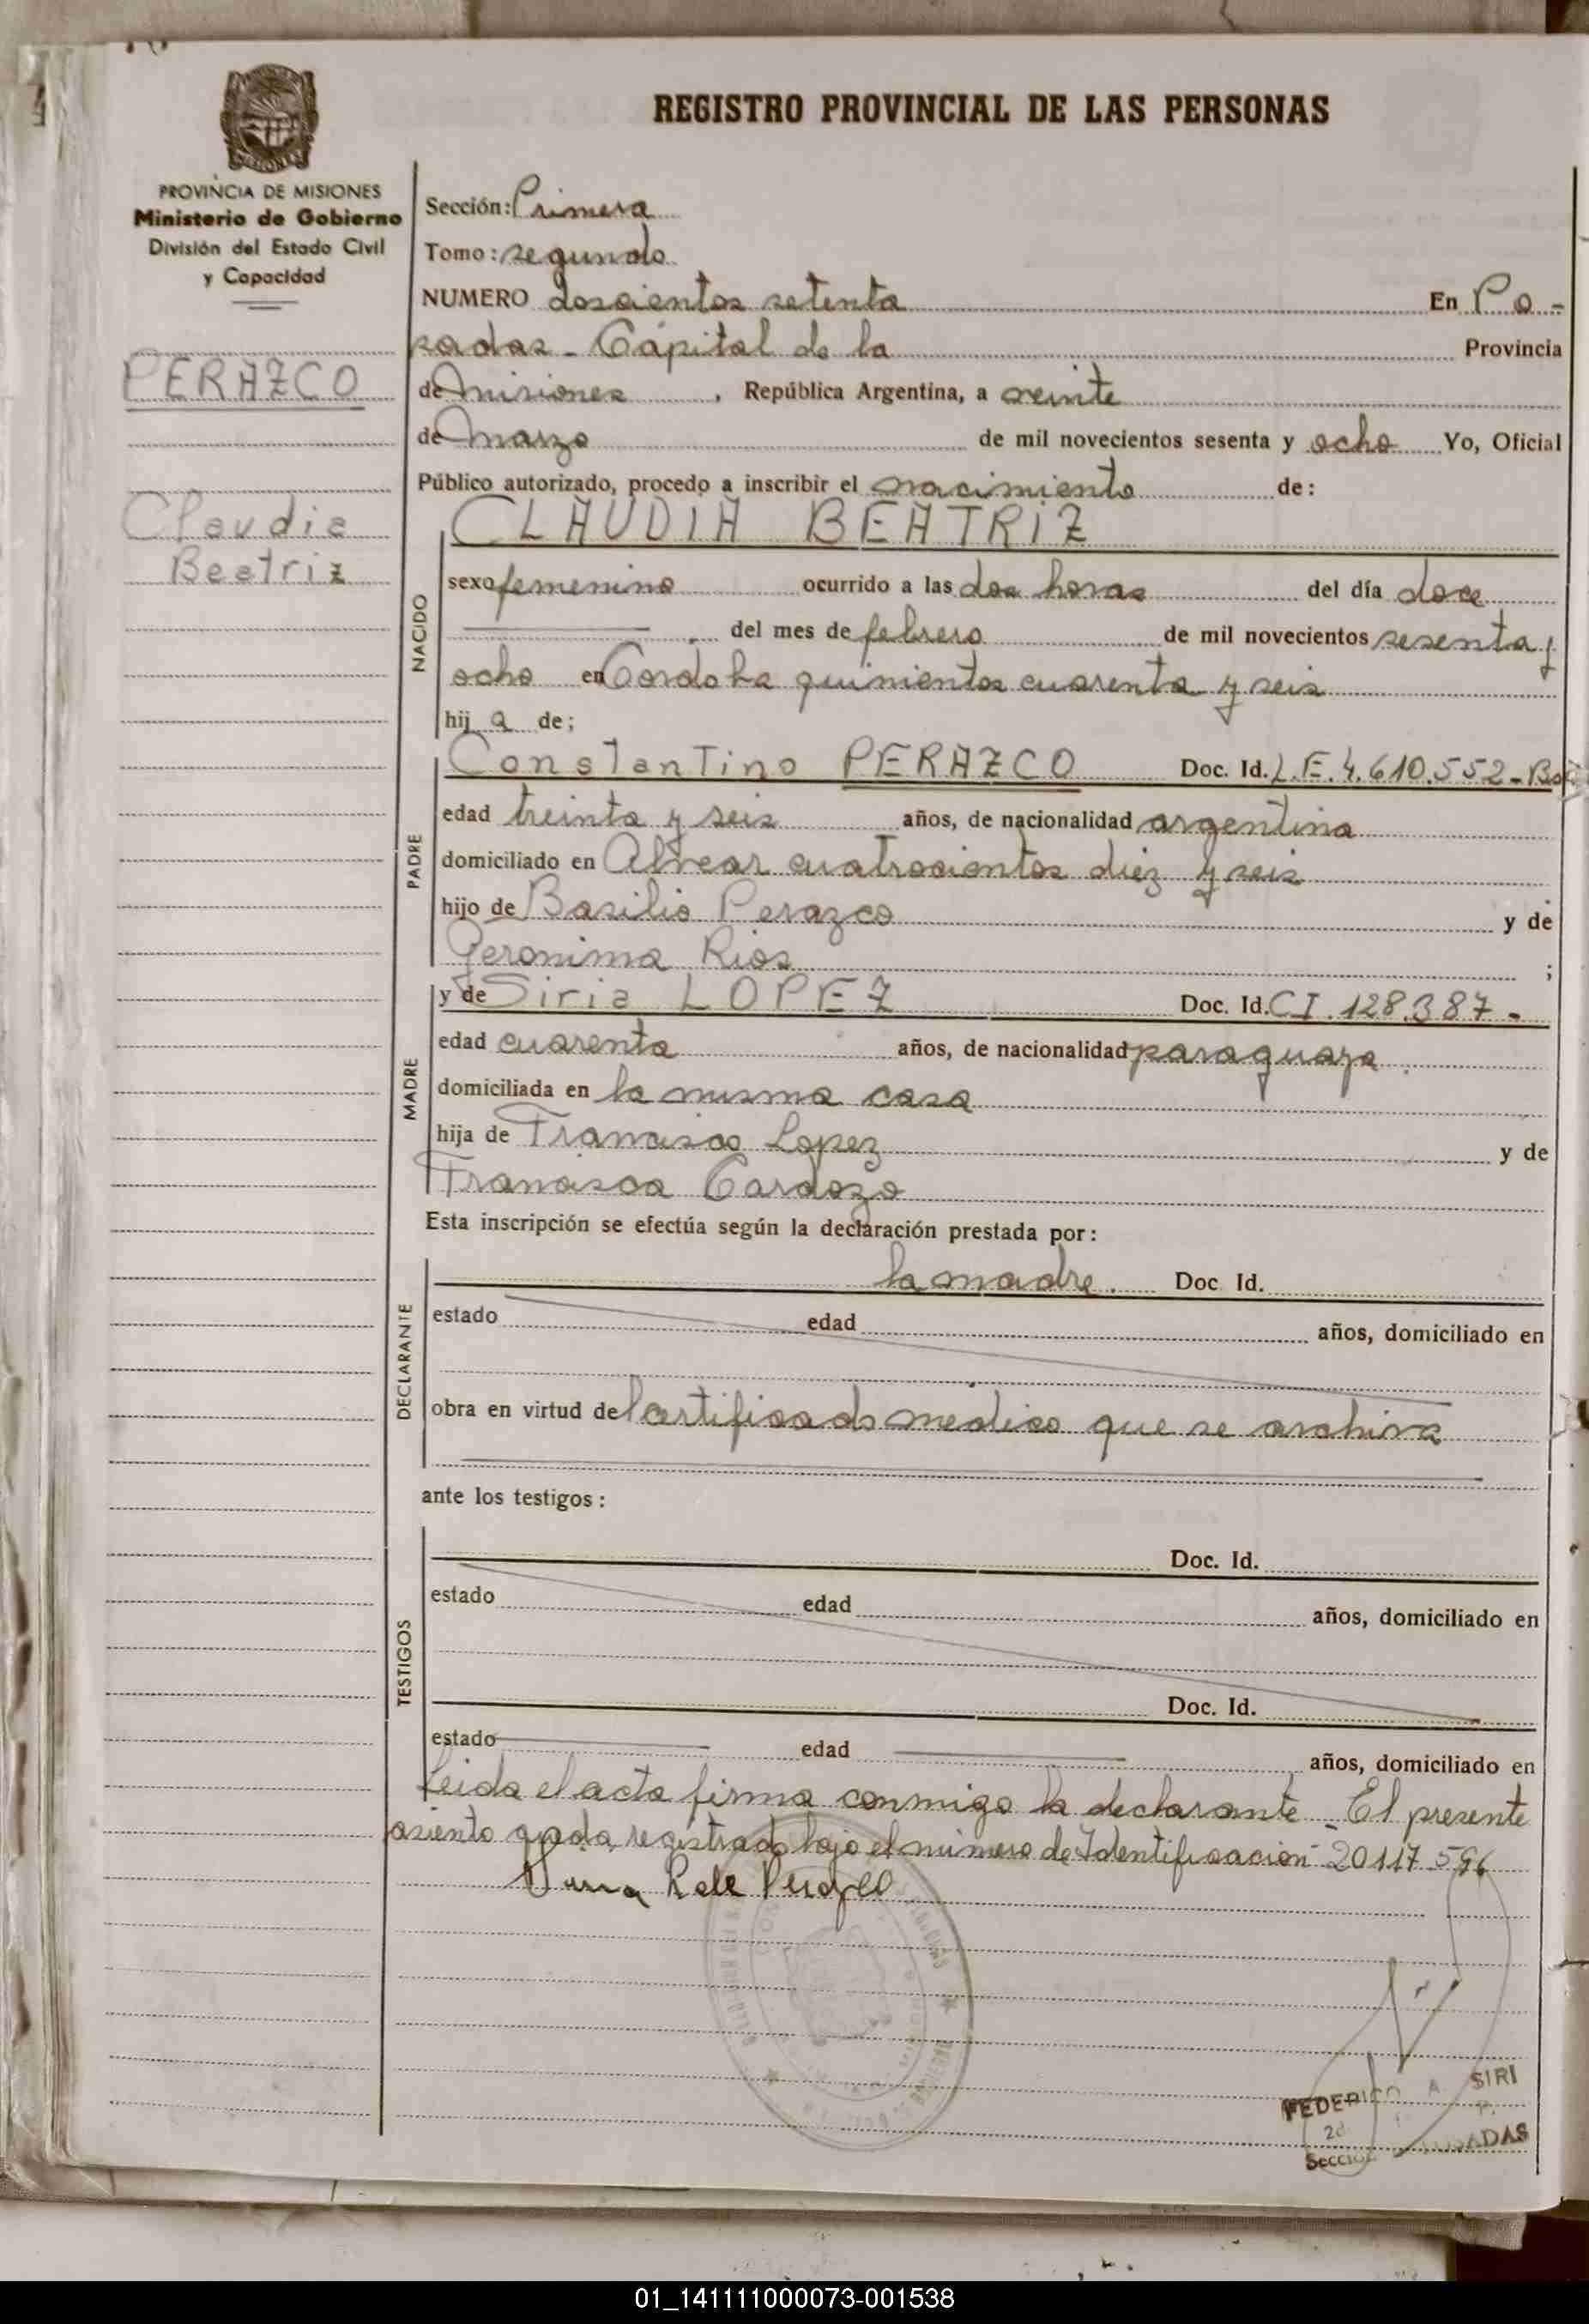 REGISTRO PROVINCIAL DE LAS PERSONAS
MISIONES
PROVINCIA DE MISIONES
Ministerio de Gobierno
División del Estado Civil
y Capacidad
PERAZCO
Claudia
Beatriz
Sección: Primera
Tomo: segundo
NUMERO doscientos setenta En Po-
sadas - Capital de la Provincia
de Misiones, República Argentina, a veinte
de Marzo de mil novecientos sesenta y ocho Yo, Oficial
Público autorizado, procedo a inscribir el nacimiento de:
CLAUDIA BEATRIZ
NACIDO
sexo femenino ocurrido a las dos horas del día doce
del mes de febrero de mil novecientos sesenta y
ocho en Cordoba quinientos cuarenta y seis
hij a de;
PADRE
Constantino PERAZCO Doc. Id. L.E. 4.610.552 -
edad treinta y seis años, de nacionalidad argentina
domiciliado en Alvear cuatrocientos diez y seis
hijo de Basilio Perazco y de
Geronima Rios ;
MADRE
y de Siria LOPEZ Doc. Id. CI. 128.387 -
edad cuarenta años, de nacionalidad paraguaya
domiciliada en la misma casa
hija de Francisco Lopez y de
Francisca Cardozo
Esta inscripción se efectúa según la declaración prestada por:
DECLARANTE
la madre. Doc. Id.
estado edad años, domiciliado en
obra en virtud del certificado medico que se archiva
ante los testigos:
TESTIGOS
Doc. Id.
estado edad años, domiciliado en
Doc. Id.
estado edad años, domiciliado en
Leida el acta firma conmigo la declarante - El presente
asiento queda registrado bajo el número de Identificación - 20117.596
FEDERICO A. SIRI
POSADAS
01_141111000073-001538